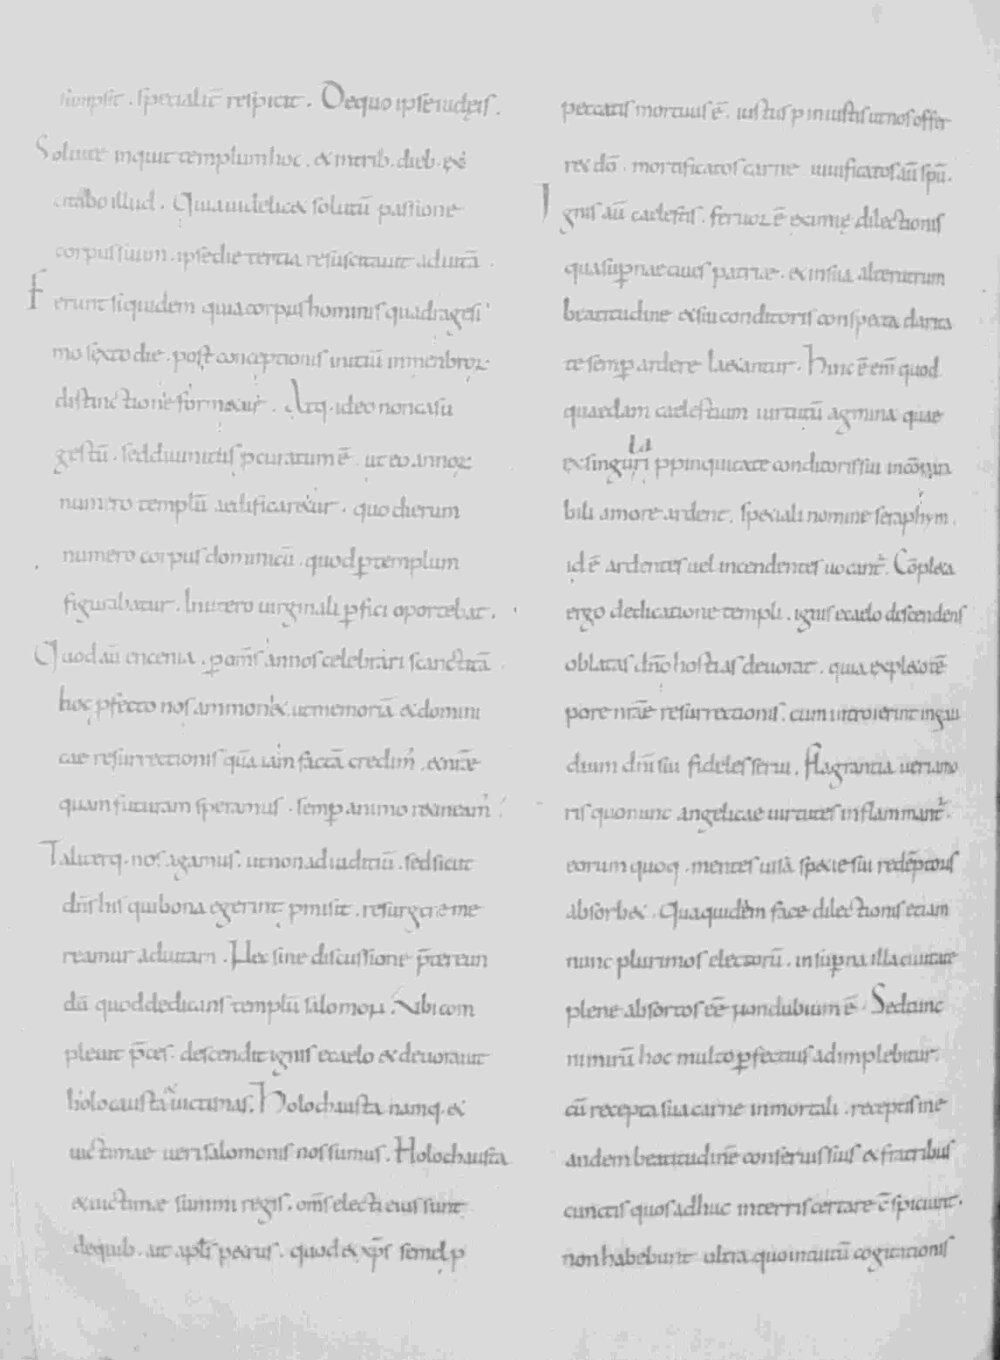 sumpsit . specialit̄ respicit . Dequo ipse iudęis .
Soluite inquit templum hoc . & intrib . dieb . exci
citabo illud . Quia uidelicet solutū passione
corpus suum . ipse die tertia resuscitauit ad uitā .
Ferunt siquidem quia corpus hominis quadragesi
mo sexto die . post conceptionis initiū inmenbroꝝ
distinctione formetur . Atq . ideo non casu
gestū . sed diuinitus pcuratum ē . ut eo annoꝝ
numero templū aedificaretur . quo dierum
numero corpus dominicū . quod ꝑ templum
figurabatur . In utero uirginali ꝑfici oportebat .
Quod aū encenia . ꝑ om̄s annos celebrari scanctitā
hoc pfecto nos ammonet . ut memoriā & domini
cae resurrectionis quā iam factā credim̓ . & nr̄ae
quam futuram speramus . semꝑ animo retineam̓ .
Taliterq . nos agamus . ut non ad iuditiū . sed sicut
dn̄s his qui bona egerint pmisit . resurgere me
reamur ad uitam . Hec sine discussione p̄tereun
dū quod dedicans templū salomon . Ubi com
pleuit p̄ces . descendit ignis ecaelo & deuorauit
holocausta & uictimas . Holochausta namq . &
uictimae ueri salomonis nos sumus . Holochausta
& uictimae summi regis . om̄s electi eius sunt
de quib . ait apl̄s petrus . quod & xp̄s semel p
peccatis mortuus ē . iustus p iniustis ut nos offer
ret dō . mortificatos carne uiuificatos aū spū .
Ignis aū caelestis . feruor ē eximię dilectionis
qua suꝑnae ciues patriae . & in sua alterutrum
beatitudine & sui conditoris conspecta clarita
te semꝑ ardere laetantur . Hinc ē eni̅ quod
quaedam caelestium uirtutū agmina quae
ex singulari ppinquitate conditoris sui incōpara
bili amore ardent . speciali nomine seraphym .
id ē ardentes uel incendentes uocant̓ . Cōpleta
ergo dedicatione templi . ignis ecaelo descendens
oblatas dn̄o hostias deuorat . quia expleto tē
pore nr̄ae resurrectionis . cum introierint in gau
dium dn̄i sui fideles serui . flagrantia ueri amo
ris quo nunc angelicae uirtutes inflammant̓ .
eorum quoq . mentes uisā specie sui redēptoris
absorbet . Qua quidem face dilectionis etiam
nunc plurimos electorū . in suꝑna illa ciuitate
plene absortos ēē non dubium ē . Sed tunc
nimirū hoc multo ꝑfectius adimplebitur .
cū recepta sua carne inmortali . receptis ine
andem beatitudinē conseruis suis & fratribus
cunctis quos adhuc in terris certare c̄spiciunt .
non habebunt ultra quo intuitū cogitationis